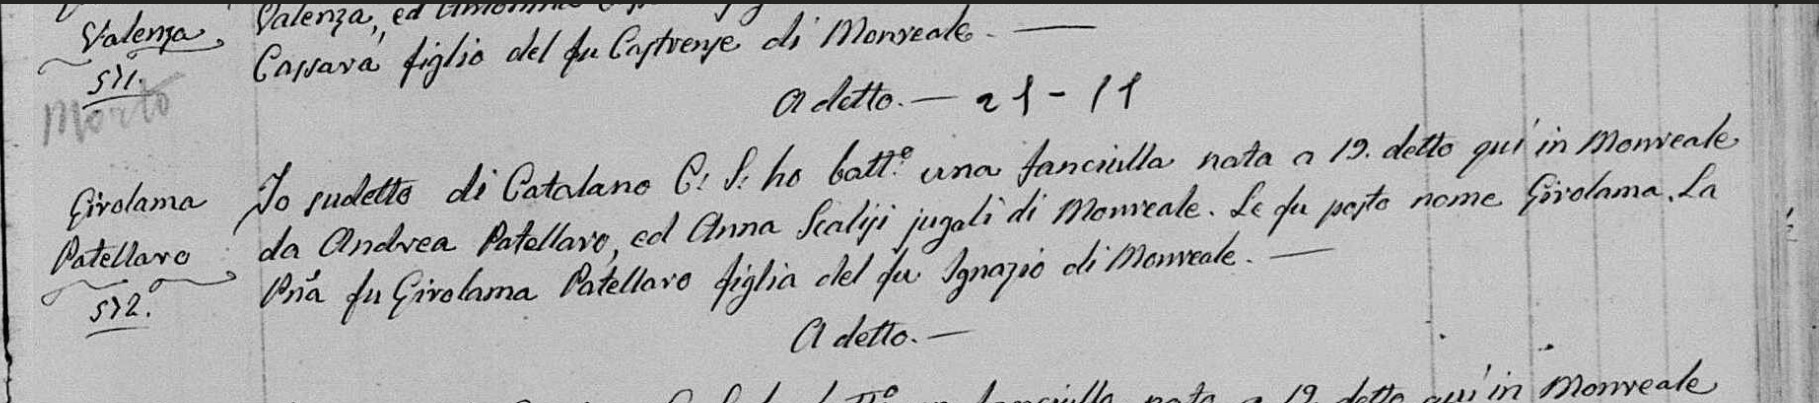 Valenza, ed
Valenza Cassarà figlio del fu Castrense di Monreale. —
571.
Morto
A detto. — 21 - 11
Girolama Io sudetto di Catalano C: S: ho batt.o una fanciulla nata a 19. detto quì in Monreale
Patellaro da Andrea Patellaro, ed Anna Scalisi jugali di Monreale. Le fu posto nome Girolama. La
572. Pna fu Girolama Patellaro figlia del fu Ignazio di Monreale. —
A detto. —
nata a 19. detto quì in Monreale